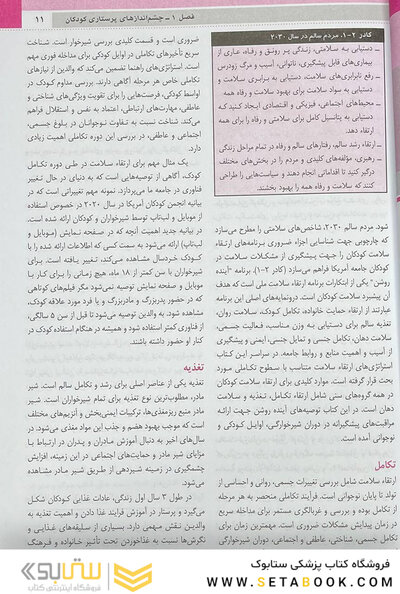 فصل ۱ ـ چشم‌اندازهای پرستاری کودکان ۱۱
کادر ۲-۱. مردم سالم در سال ۲۰۳۰
ـ دستیابی به سلامتی، زندگی پر رونق و رفاه، عاری از
بیماری‌های قابل پیشگیری، ناتوانی، آسیب و مرگ زودرس
ـ رفع نابرابری‌های سلامت، دستیابی به برابری سلامت و
دستیابی به سواد سلامت برای بهبود سلامت و رفاه همه
ـ محیط‌های اجتماعی، فیزیکی و اقتصادی ایجاد کنید که
دستیابی به پتانسیل کامل برای سلامتی و رفاه را برای همه
ارتقاء دهد.
ـ ارتقاء رشد سالم، رفتارهای سالم و رفاه در تمام مراحل زندگی
ـ رهبری، مؤلفه‌های کلیدی و مردم را در بخش‌های مختلف
درگیر کنید تا اقداماتی انجام دهند و سیاست‌هایی را طراحی
کنند که سلامت و رفاه همه را بهبود بخشند.
شود. مردم سالم ۲۰۳۰، شاخص‌های سلامتی را مطرح می‌سازد
که چارچوبی جهت شناسایی اجزاء ضروری برنامه‌های ارتقاء
سلامت کودکان را جهت پیشگیری از مشکلات سلامتی
کودکان جامعه آمریکا فراهم می‌سازد (کادر ۲-۱). برنامه "آینده
روشن" یکی از ابتکارات برنامه ارتقاء سلامت ملی است که هدف
آن پیشبرد سلامت کودکان است. درونمایه‌های اصلی این برنامه
عبارتند از ارتقاء حمایت خانواده، تکامل کودک، سلامت روان،
تغذیه سالم برای دستیابی به وزن مناسب، فعالیت جسمی،
سلامت دهان، تکامل جنسی و تمایل جنسی، ایمنی و پیشگیری
از آسیب و اهمیت منابع و روابط جامعه. در سراسر این کتاب
استراتژی‌های ارتقاء سلامت متناسب با سطوح تکاملی مورد
بحث قرار گرفته است. موارد کلیدی برای ارتقاء سلامت کودکان
در همه گروه‌های سنی شامل ارتقاء تکامل، تغذیه و سلامت
دهان است. در این کتاب توصیه‌های آینده روشن جهت ارائه
مراقبت‌های پیشگیرانه در دوران شیرخوارگی، اوایل کودکی و
نوجوانی آمده است.
تکامل
ارتقاء سلامت شامل بررسی تغییرات جسمی، روانی و احساسی از
تولد تا پایان نوجوانی است. فرآیند تکاملی منحصر به هر مرحله
از تکامل بوده و بررسی و غربالگری مستمر برای مداخله سریع
در زمان پیدایش مشکلات ضروری است. مهمترین زمان برای
تکامل جسمی، شناختی، عاطفی و اجتماعی، دوران شیرخوارگی
ضروری است و قسمت کلیدی بررسی شیرخوار است. شناخت
سریع تأخیرهای تکاملی در اوایل کودکی برای مداخله فوری مهم
است. استراتژی‌های راهنما تضمین می‌کند که والدین از نیازهای
تکاملی خاص هر مرحله آگاهی دارند. بررسی مداوم کودک در
اواسط کودکی، فرصت‌هایی را برای تقویت ویژگی‌های شناختی و
عاطفی، مهارت‌های ارتباطی، اعتماد به نفس و استقلال فراهم
می‌کند. شناخت نسبت به تفاوت نوجوانان در بلوغ جسمی،
اجتماعی و عاطفی، در بررسی این دوره تکاملی اهمیت زیادی
دارد.
یک مثال مهم برای ارتقاء سلامت در طی دوره تکامل
کودک، آگاهی از توصیه‌هایی است که به دنیای در حال تغییر
فناوری در جامعه ما می‌پردازد. نمونه مهم تغییراتی است که در
بیانیه انجمن کودکان آمریکا در سال ۲۰۲۰ در خصوص استفاده
از موبایل و لب‌تاپ توسط شیرخواران و کودکان ارائه شده است.
در بیانیه جدید اهمیت آنچه که در صفحه نمایش (موبایل و
لب‌تاپ) ارائه می‌شود به سمت کسی که اطلاعات ارائه شده را با
کودک خردسال مشاهده می‌کند، تغییر یافته است. برای
شیرخواران با سن کمتر از ۱۸ ماه، هیچ زمانی را برای کار با
موبایل و صفحه نمایش توصیه نمی‌شود مگر فیلم‌های کوتاهی
که در حضور پدربزرگ و مادربزرگ و یا فرد مورد علاقه کودک،
مشاهده شود. به والدین توصیه می‌شود تا قبل از سن ۵ سالگی،
از فناوری کمتر استفاده شود و همیشه در هنگام استفاده کودک در
کنار او حضور داشته باشند.
تغذیه
تغذیه یکی از عناصر اصلی برای رشد و تکامل سالم است. شیر
مادر، مطلوب‌ترین نوع تغذیه برای تمام شیرخواران است. شیر
مادر منبع ریزمغذی‌ها، ترکیبات ایمنی‌بخش و آنزیم‌های مختلف
است که موجب بهبود هضم و جذب این مواد مغذی می‌شود. در
سال‌های اخیر به دنبال آموزش مادران و پدران در ارتباط با
مزایای شیر مادر و حمایت‌های اجتماعی در این زمینه، افزایش
چشمگیری در زمینه شیردهی از طریق شیر مادر مشاهده
می‌شود.
در طول ۳ سال اول زندگی، عادات غذایی کودکان شکل
می‌گیرد و پرستار در آموزش فرآیند غذا دادن و اهمیت تغذیه به
والدین نقش مهمی دارد. بسیاری از سلیقه‌های غذایی و
نگرش‌ها نسبت به غذاخوردن تحت تأثیر خانواده و فرهنگ
فروشگاه کتاب پزشکی ستابوک
WWW.SETABOOK.COM
ستابوک
فروشگاه اینترنتی کتاب